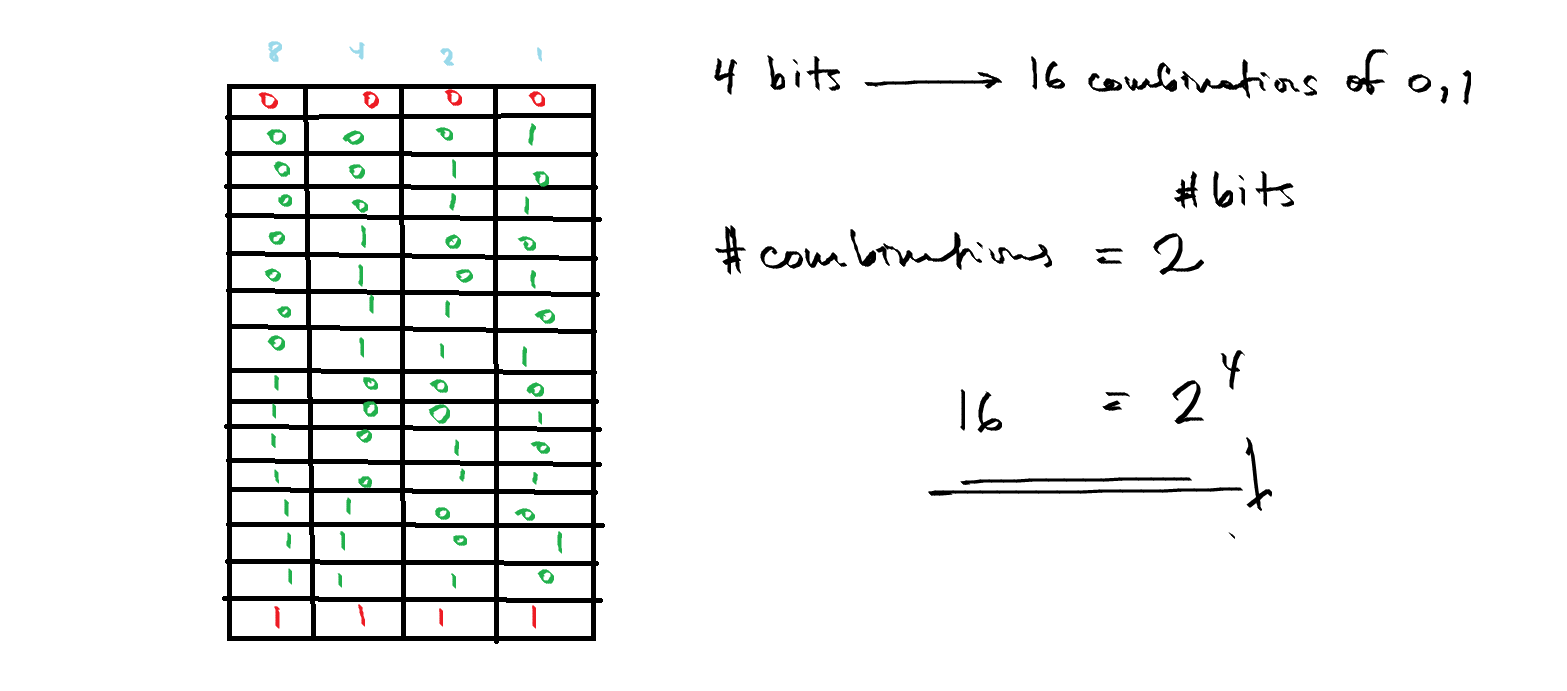 8 4 2 1
0 0 0 0
0 0 0 1
0 0 1 0
0 0 1 1
0 1 0 0
0 1 0 1
0 1 1 0
0 1 1 1
1 0 0 0
1 0 0 1
1 0 1 0
1 0 1 1
1 1 0 0
1 1 0 1
1 1 1 0
1 1 1 1
4 bits → 16 combinations of 0,1
#bits
#combinations = 2
16 = 2⁴